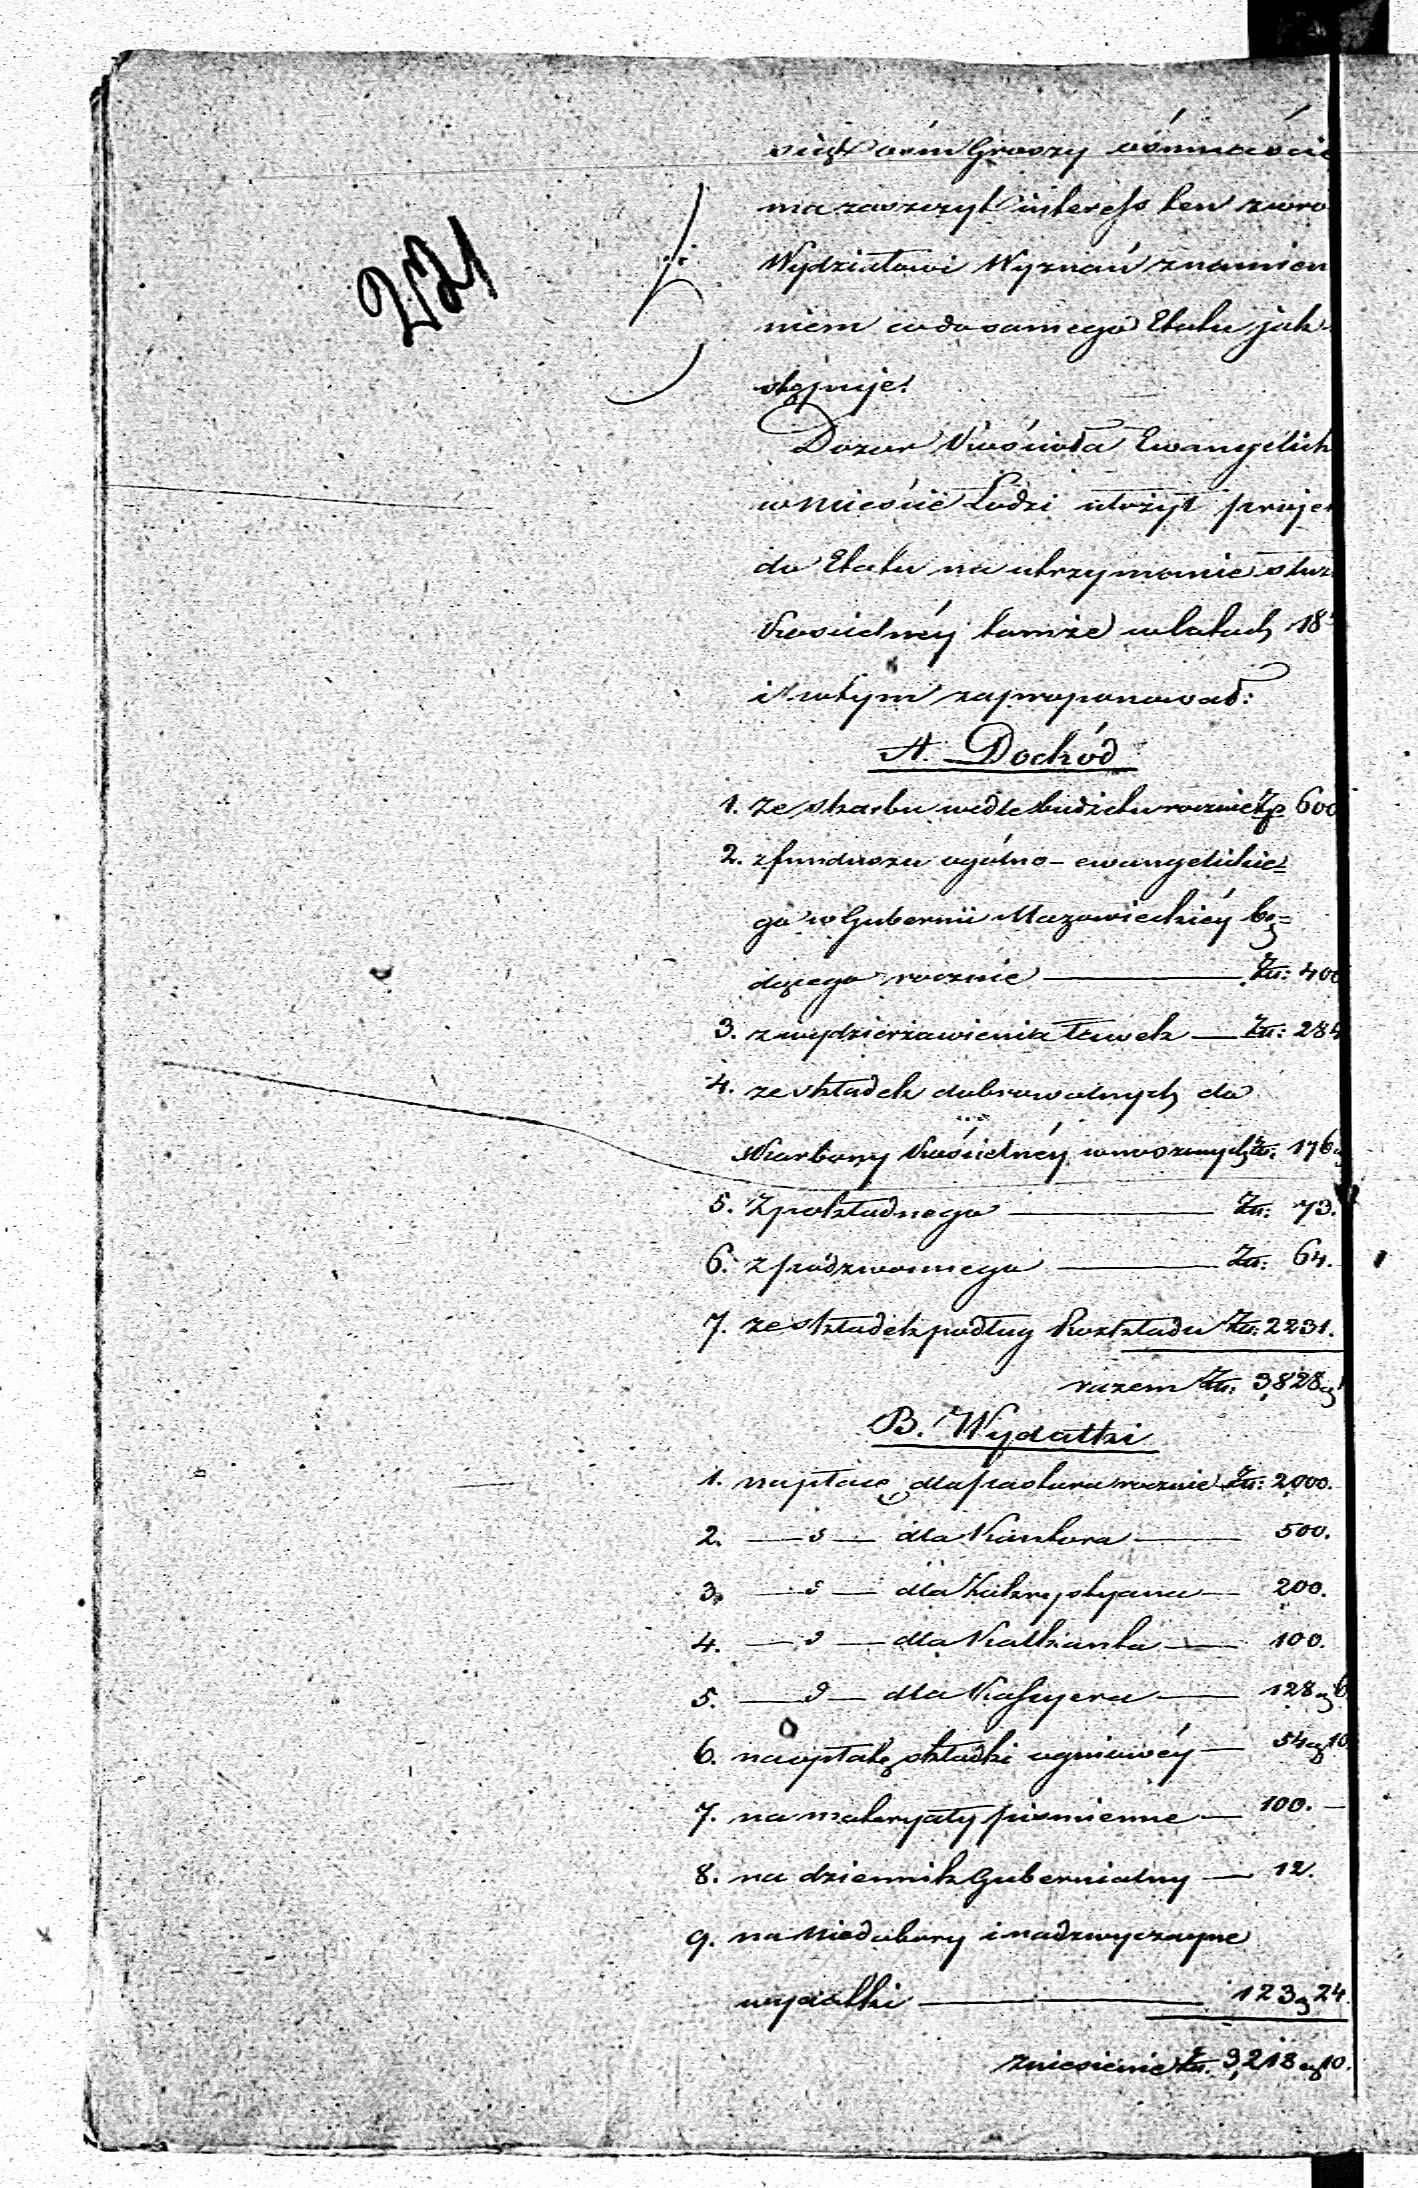 221
siąt ośm Groszy ośmnaście
ma zaszczyt interess ten zwro
Wydziałowi Wyznań z nadmien
niem co do samego Etatu jak
stępuje:
Dozur Kościoła Ewangelick
w Mieście Łodzi ułożył projek
do Etatu na utrzymanie służ
Kościelnéy tamże w latach 18
i w tym zaproponował:
A. Dochód
1. Ze skarbu wedle budżetu rocznie Zp 600
2. z funduszu ogólno-ewangelickie=
go w Gubernii Mazowieckiéy bę=
dącego rocznie — Zł: 400
3. z wydzierżawienia ławek — Zł: 284
4. ze składek dobrowolnych do
Skarbony Kościelnéy wnoszonych Zł: 176
5. Z pokładnego — Zł: 73.
6. z podzwonnego — Zł: 64.
7. ze składek podług Rozkładu Zł: 2231.
razem Zł: 3,828 g
B. Wydatki
1. na płacę dla pastora rocznie Zł: 2,000.
2. — " — dla Kantora — 500.
3. — " — dla Zakrystyana — 200.
4. — " — dla Kalkanta — 100.
5. — " — dla Kassyera — 128 g 6
6. na opłatę składki ogniowéy — 54 g 10
7. na materyały piśmienne — 100. —
8. na dziennik Gubernialny — 12.
9. na niedobory i nadzwyczayne
wydatki — 123 g 24.
zniesienie Zł. 3,218 g 10.